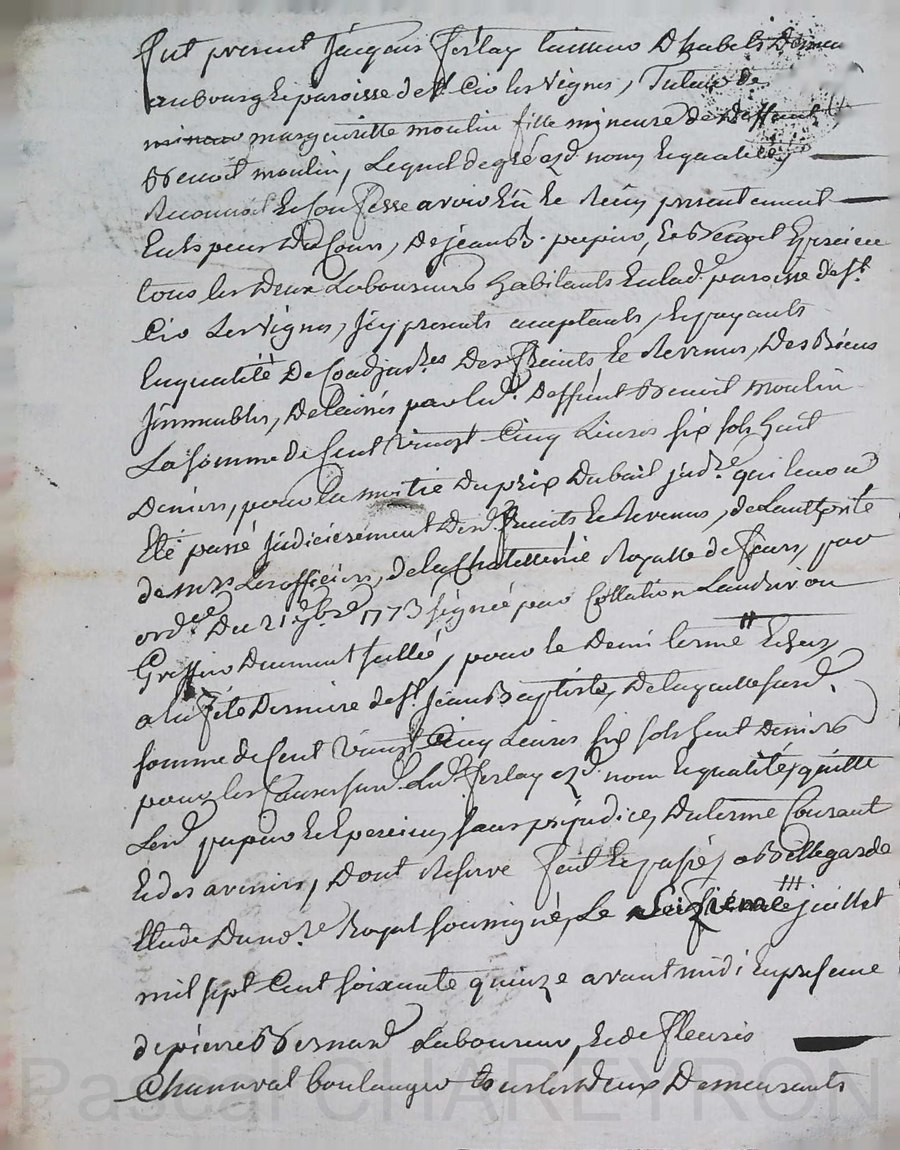 fut present Jacques ferlay D'habits
au bourg et paroisse de st Cir les Vignes, Tuteur de
margueritte moulin fille mineure de deffunt
Benoit moulin, Lequel de gré ezd nom et qualité
Reconnoit et Confesse avoir Eu et Reçu presentement
En Especes Du Cours, De Jean B. papin, et Benoit Epercieu
tous les deux Laboureurs habitants En lad paroisse de st
Cir Les Vignes, Jcy presents acceptants, et payants
En qualité De Coadjud.res Des fruits et Revenus, Des Biens
Jmmeubles, Delaissés par led. Deffunt Benoit Moulin
La somme de Cent Vingt Cinq Livres six sols huit
Deniers, pour la moitié Du prix Du bail jud.re qui leur a
Eté passé judicierement Desd. fruits et Revenus, de L'authorité
de mrs Les officiers, de la Chatellenie Royalle de feurs, par
ord.ce Du 21 9bre 1773 signée par Collation
Greffier Duement scellé, pour le Demi terme Echeu
a la féte Derniere de st. Jean Baptiste, De laquelle susd.
somme de Cent Vingt Cinq Livres six sols huit deniers
pour les Causes susd. Led. ferlay ezd. nom et qualité, quitte
Lesd papin et Epercieu, sans préjudice, Du terme Courant
et des avenir, Dont Reserve fait et passé, a Bellegarde
Etude Du no.re Royal soussigné, Le Seizieme juillet
mil sept Cent soixante quinze avant midi En presence
de pierre Bernard Laboureur, et de fleuris
Chanaval boulanger tous les deux Demeurants
Pascal CHAREYRON